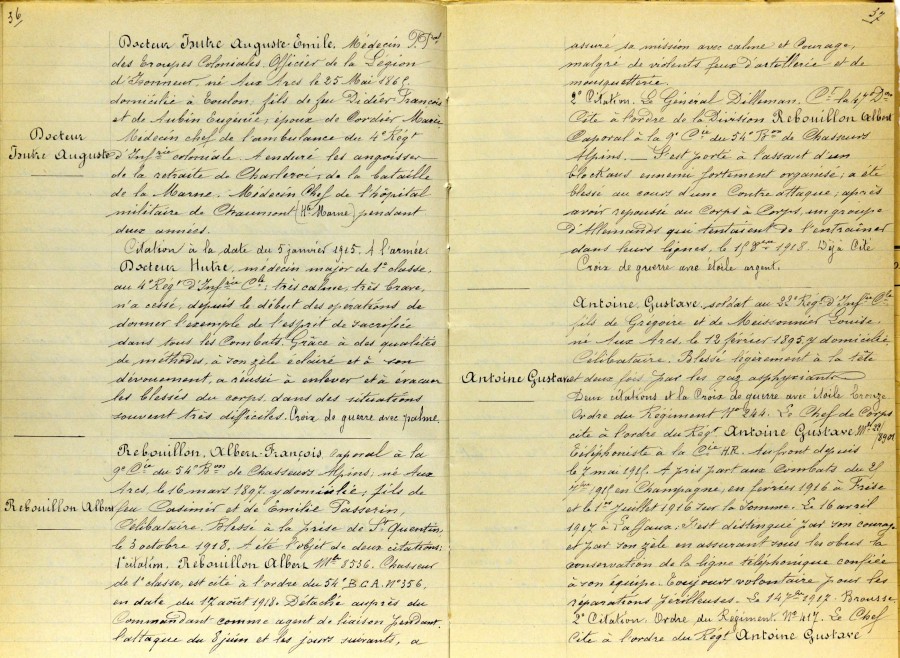 36
Docteur Hutre Auguste Emile. Médecin P.pal
des Troupes Coloniales. Officier de la Légion
d'Honneur, né Aux Arcs le 25 Mai 1865,
domicilié à Toulon, fils de feu Didier François
et de Aubin Eugénie; époux de Cordier Marie
Docteur
Hutre Auguste
Médecin chef de l'ambulance du 4e Régt
d'Infrie coloniale. A enduré les angoisses
de la retraite de Charleroi; de la bataille
de la Marne. Médecin Chef de l'hôpital
militaire de Chaumont (Hte Marne) pendant
deux années.
Citation à la date du 5 janvier 1915. A l'armée.
Docteur Hutre, médecin major de 1e classe,
au 4e Régt D'Infrie Cle: très calme, très brave,
n'a cessé, depuis le début des opérations de
donner l'exemple de l'esprit de sacrifice
dans tous les Combats. Grâce à des qualités
de méthodes, à son zèle éclairé et à son
dévouement, a réussi à enlever et à évacuer
les blessés du corps, dans des situations
souvent très difficiles. Croix de guerre avec palme.
Rebouillon, Albert-François, Caporal à la
9e Cie du 54e Bon de Chasseurs Alpins, né Aux
Arcs, le 16 mars 1897, y domicilié; fils de
Rebouillon Albert
feu Casimir et de Emilie Passerin,
Célibataire. Blessé à la prise de St Quentin
le 3 octobre 1918. A été l'objet de deux citations:
1e citation. Rebouillon Albert Mle 8536. Chasseur
de 1e classe, est cité à l'ordre du 54e B.C.A. No 356,
en date du 17 août 1918. Détaché auprès du
Commandant comme agent de liaison pendant
l'attaque du 8 juin et les jours suivants, a
37
assuré sa mission avec calme et Courage,
malgré de violents feux d'artillerie et de
mousquetterie.
2e Citation. Le Général Dilleman. Ct la 47e Don
Cite à l'ordre de la Division Rebouillon Albert
Caporal à la 9e Cie du 54e Bon de Chasseurs
Alpins. — S'est porté à l'assaut d'un
blockaus ennemi fortement organisé; a été
blessé au cours d'une Contre attaque; après
avoir repoussé au Corps à Corps, un groupe
d'Allemands qui tentaient de l'entraîner
dans leurs lignes, le 15 8bre 1918. Déjà Cité
Croix de guerre avec étoile argent.
Antoine, Gustave, soldat au 22e Régt d'Infie Cle
fils de Grégoire et de Meissonnier Louise.
né Aux Arcs, le 12 février 1895, y domicilié
Célibataire. Blessé légèrement à la tête
Antoine Gustave
et deux fois par les gaz asphyxiants
Deux citations et la Croix de guerre avec étoile bronze.
Ordre du Régiment No 244. Le Chef de Corps
cite à l'ordre du Régt Antoine Gustave Mle 22/8901
Téléphoniste à la Cie H.R. Au front depuis
le 7 mai 1915. A pris part aux Combats du 25
7bre 1915 en Champagne; en février 1916 à Frise
et le 1er Juillet 1916 sur la Somme. Le 16 avril
1917 à Laffaux. S'est distingué par son courage
et par son zèle en assurant sous les obus la
conservation de la ligne téléphonique confiée
à son équipe. Toujours volontaire pour les
réparations périlleuses. Le 14 7bre 1917. Brousse.
2e Citation. Ordre du Régiment. No 417. Le Chef
Cite à l'ordre du Régt Antoine Gustave